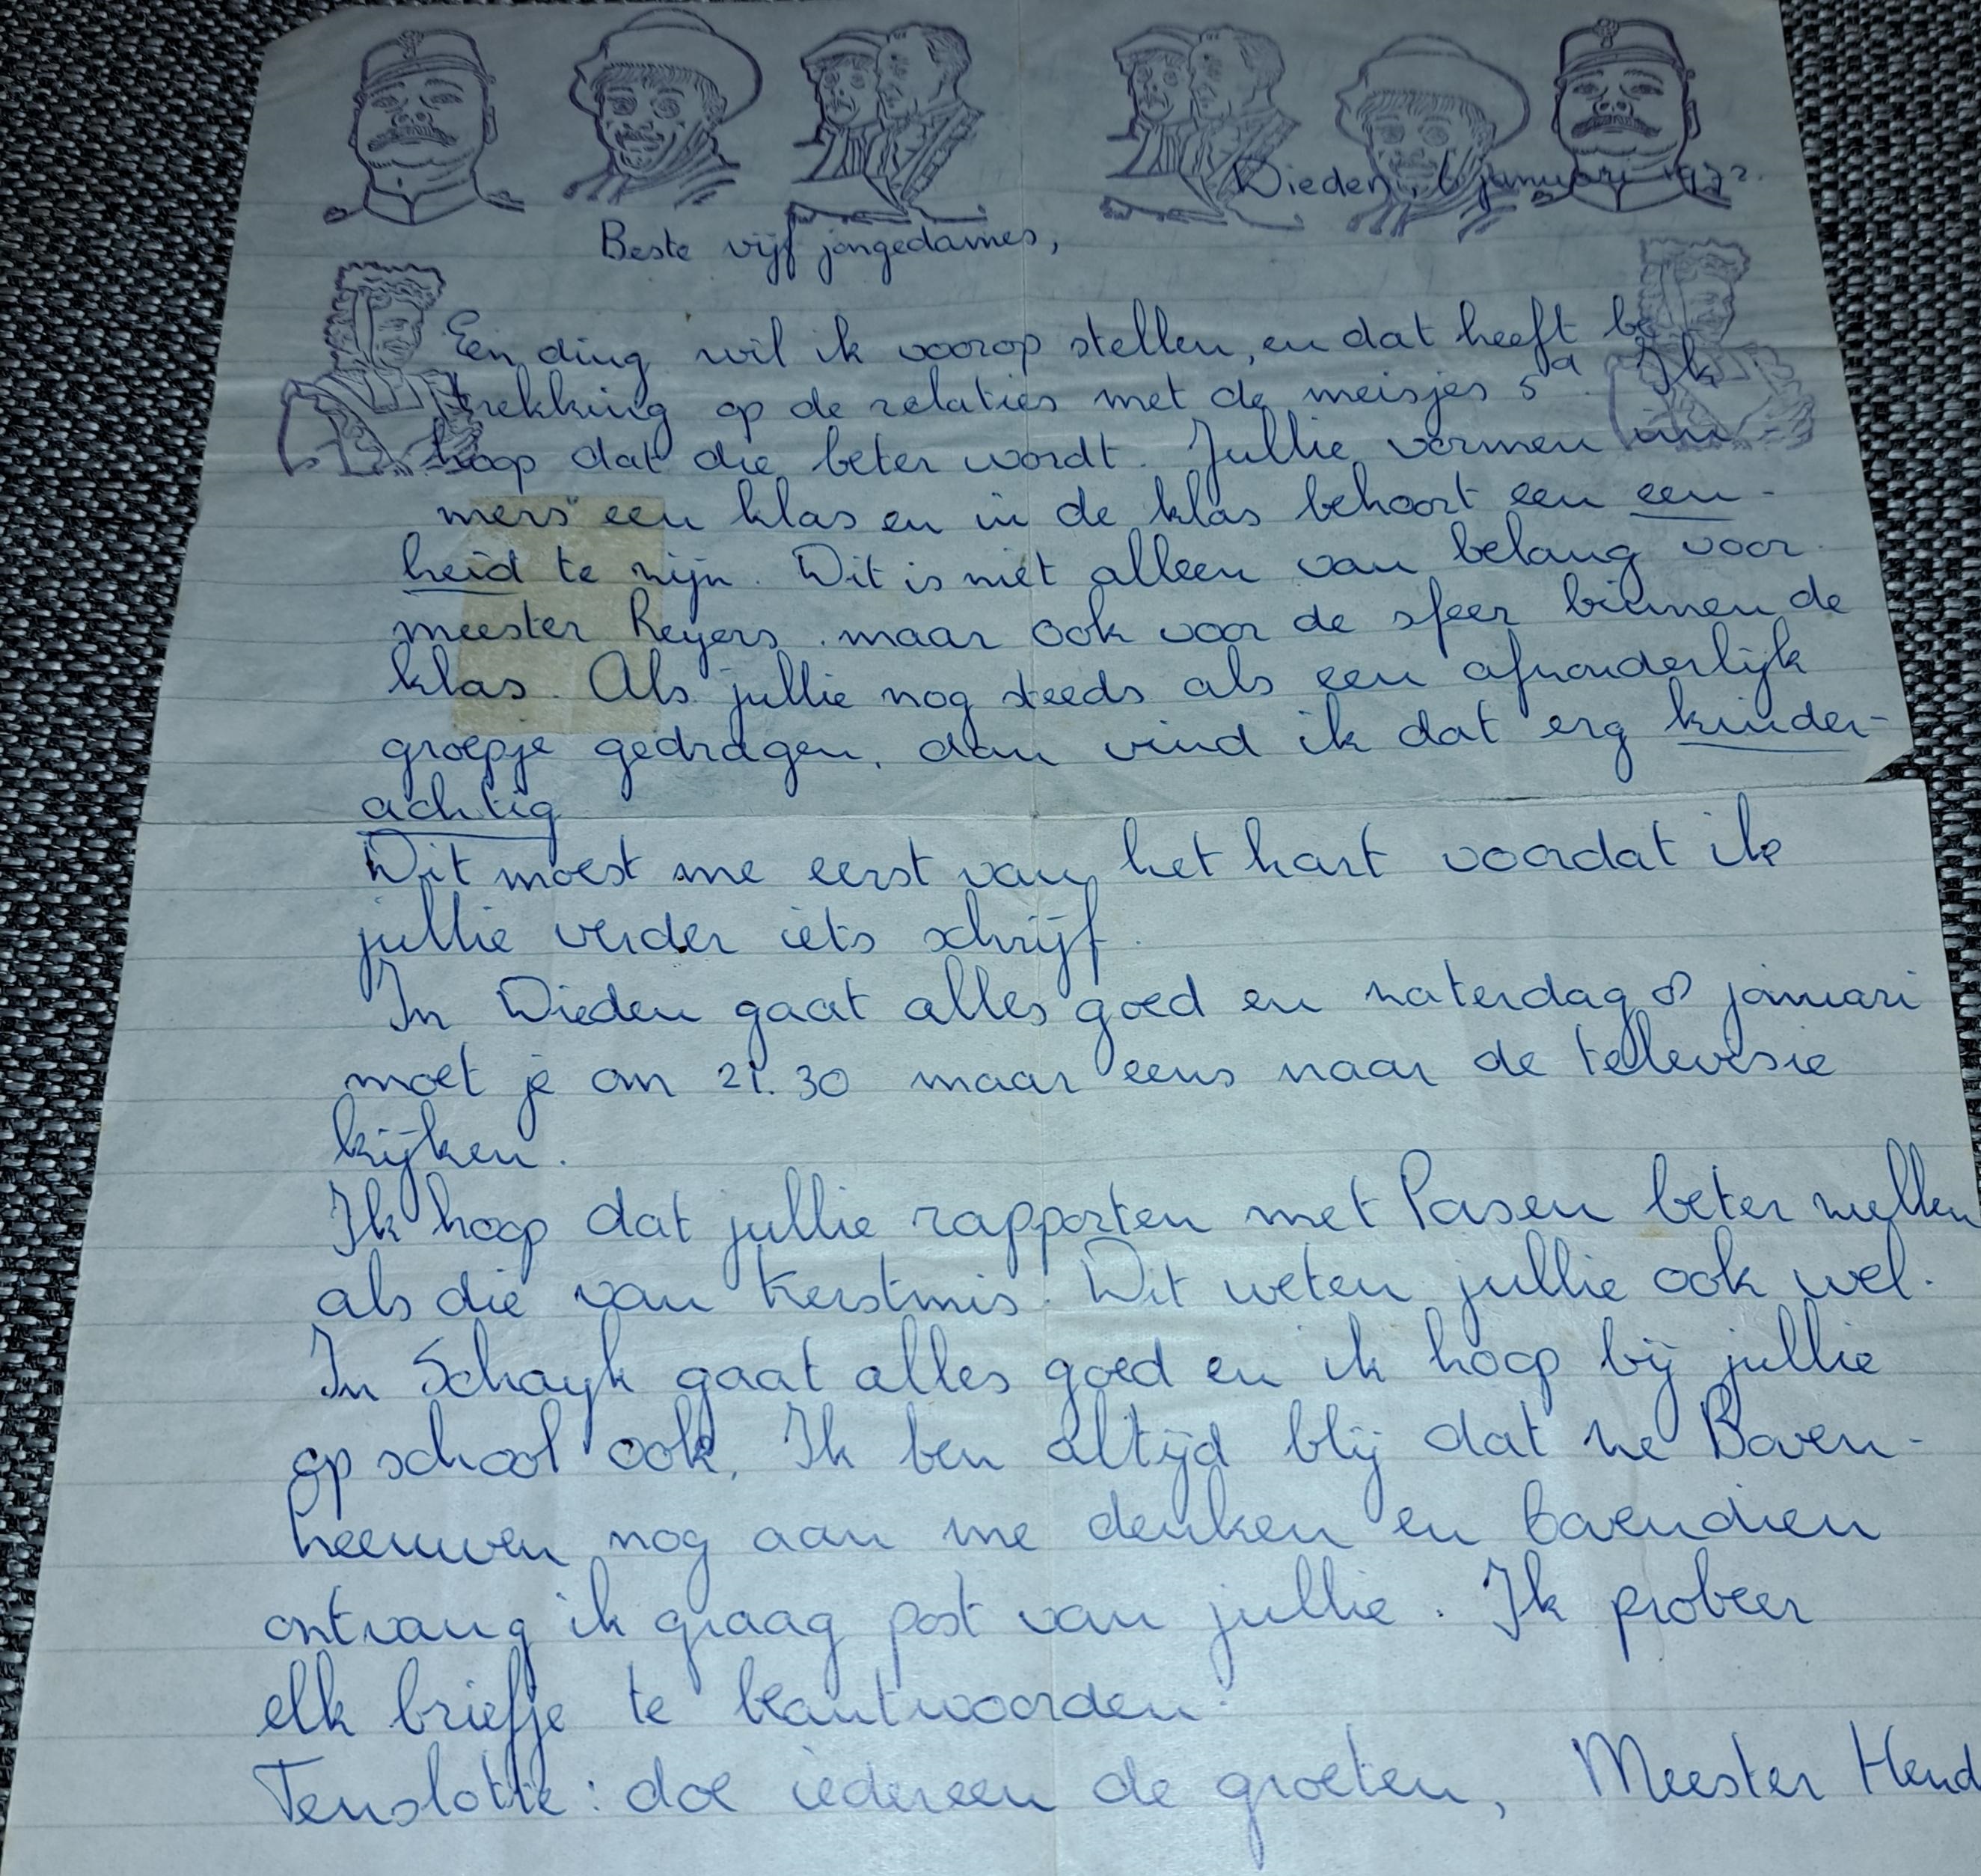 Dieden, 6 januari 1972.
Beste vijf jongedames,
Een ding wil ik voorop stellen, en dat heeft be
trekking op de relaties met de meisjes 5a. Ik
hoop dat die beter wordt. Jullie vormen im
mers een klas en in de klas behoort een een-
heid te zijn. Dit is niet alleen van belang voor
meester Reyers. maar ook voor de sfeer binnen de
klas. Als jullie nog steeds als een afzonderlijk
groepje gedragen, dan vind ik dat erg kinder-
achtig
Dit moest me eerst van het hart voordat ik
jullie verder iets schrijf.
In Dieden gaat alles goed en zaterdag 8 januari
moet je om 21.30 maar eens naar de televisie
kijken.
Ik hoop dat jullie rapporten met Pasen beter zullen
als die van Kerstmis. Dit weten jullie ook wel.
In Schayk gaat alles goed en ik hoop bij jullie
op school ook. Ik ben altijd blij dat ze Boven-
heeuwen nog aan me denken en bovendien
ontvang ik graag post van jullie. Ik probeer
elk briefje te beantwoorden.
Tenslotte: doe iedereen de groeten, Meester Hend